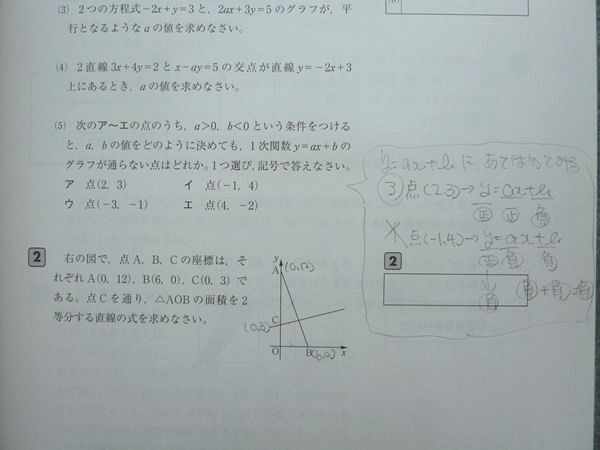 (3) 2つの方程式−2x+y=3と, 2ax+3y=5のグラフが, 平
行となるようなaの値を求めなさい。
(4) 2直線3x+4y=2とx−ay=5の交点が直線y=−2x+3
上にあるとき, aの値を求めなさい。
(5) 次のア〜エの点のうち, a>0, b<0という条件をつける
と, a, bの値をどのように決めても, 1次関数y=ax+bの
グラフが通らない点はどれか。1つ選び, 記号で答えなさい。
ア 点(2, 3) イ 点(−1, 4)
ウ 点(−3, −1) エ 点(4, −2)
y=ax+bにあてはめてみる
点(2,3)→y=ax+b
正 正 負
点(-1,4)→y=ax+b
正 負 負
負
負+負=負
2
2
右の図で, 点A, B, Cの座標は, そ
れぞれA(0, 12), B(6, 0), C(0, 3)で
ある。点Cを通り, △AOBの面積を2
等分する直線の式を求めなさい。
y
A
(0,12)
C
(0,3)
O
B
(6,0)
x